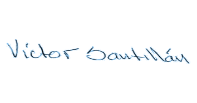 Víctor Santillán